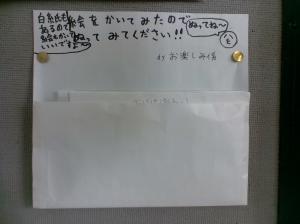 白紙も
あるので
絵もかいて
いいです
絵をかいてみたので
ぬってね〜
ぬってみてください!!
by お楽しみ係